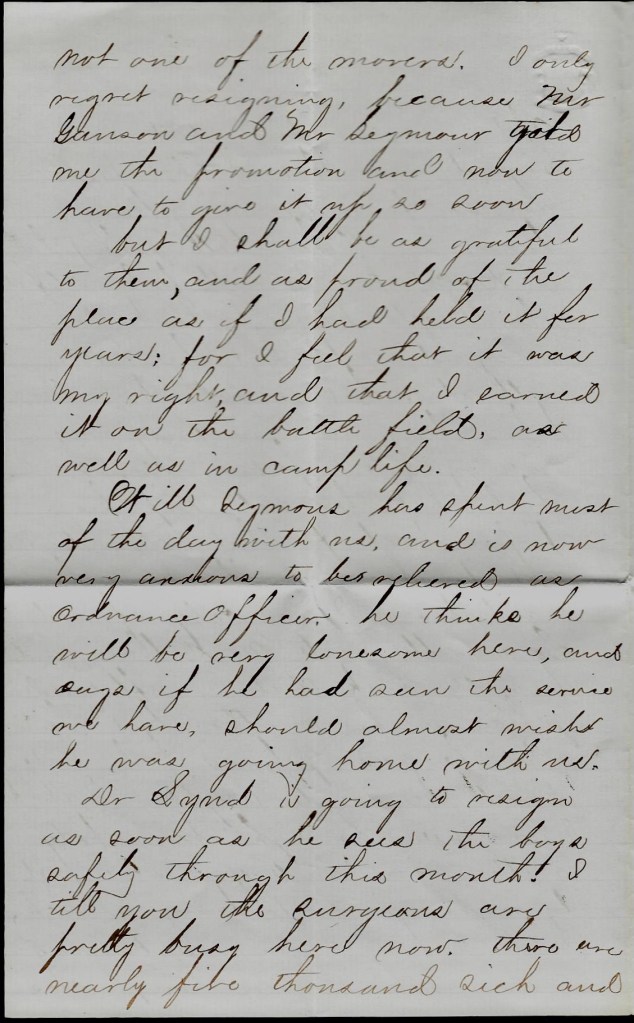 not one of the movers. I only
regret resigning, because Mr
Ganson and Mr Seymour
me the promotion and now to
have to give it up so soon
but I shall be as grateful
to them, and as proud of the
place as if I had held it for
years; for I feel that it was
my right, and that I earned
it on the battle field, as
well as in camp life.
Will Seymour has spent most
of the day with us, and is now
very anxious to be relieved as
Ordnance Officer. he thinks he
will be very lonesome here, and
says if he had seen the service
we have, should almost wish
he was going home with us.
Dr Lynd is going to resign
as soon as he sees the boys
safely through this month. I
tell you the surgeons are
pretty busy here now. there are
nearly five thousand sick and